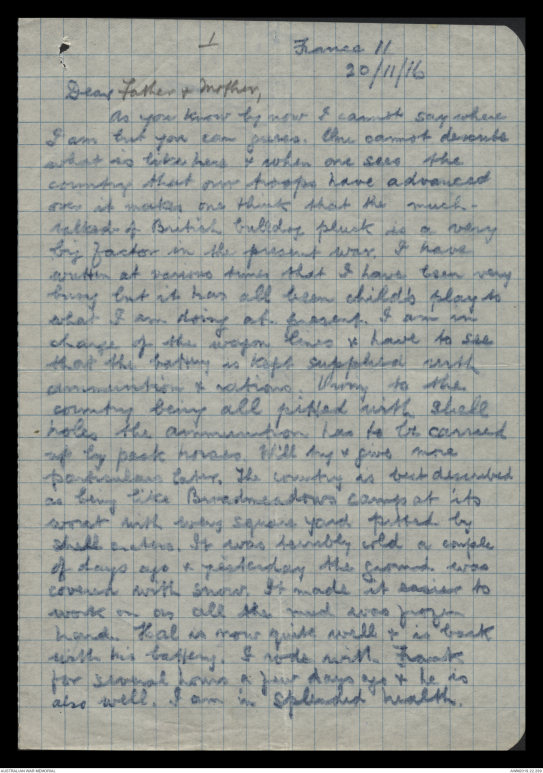 1
France 11
20/11/16
Dear Father & Mother,
As you know by now I cannot say where
I am but you can guess. One cannot describe
what is like here & when one sees the
country that our troops have advanced
over it makes one think that the much-
talked-of British bulldog pluck is a very
big factor in the present war. I have
written at various times that I have been very
busy but it has all been child's play to
what I am doing at present. I am in
charge of the wagon lines & have to see
that the battery is kept supplied with
ammunition & rations. Owing to the
country being all pitted with shell
holes the ammunition has to be carried
up by pack horses. Will try & give more
particulars later. The country is best described
as being like Broadmeadows camp at its
worst with every square yard pitted by
shell craters. It was terribly cold a couple
of days ago & yesterday the ground was
covered with snow. It made it easier to
work on as all the mud was frozen
hard. Hal is now quite well & is back
with his battery. I rode with Frank
for several hours a few days ago & he is
also well. I am in splendid health.
AUSTRALIAN WAR MEMORIAL